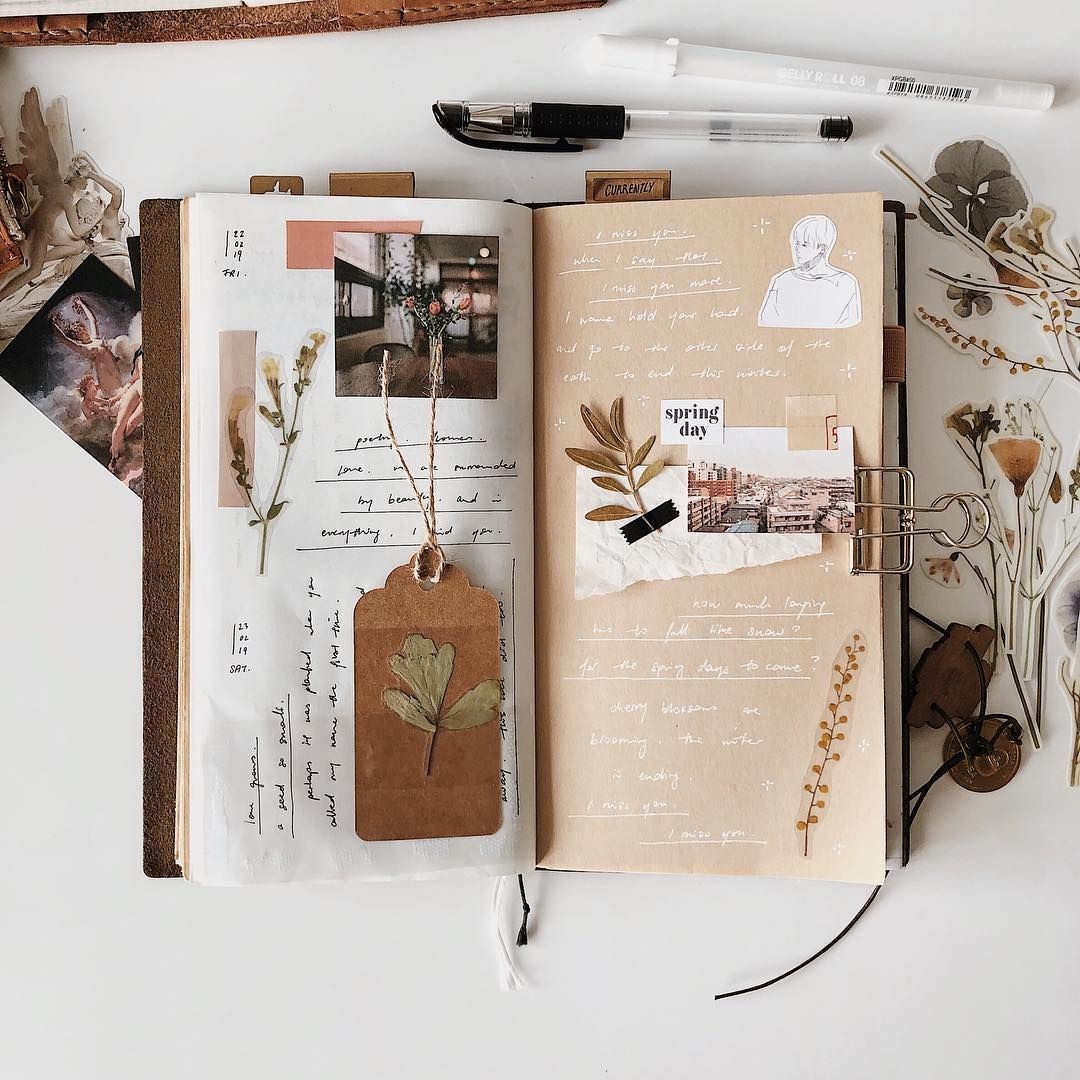 GELLY ROLL 08
XPGB#50
CURRENTLY
22
02
19
FRI.
poetry. flowers.
love. we are surrounded
by beauty. and in
everything, I find you.
23
02
19
SAT.
love grows.
a seed so small.
perhaps it was planted when you
called my name the first time.
away. this
I miss you.
when I say that.
I miss you more.
I wanna hold your hand.
and go to the other side of the
earth. to end this winter.
spring
day
5
how much longing
has to fall like snow?
for the spring days to come?
cherry blossoms are
blooming. the winter
is ending.
I miss you.
I miss you.